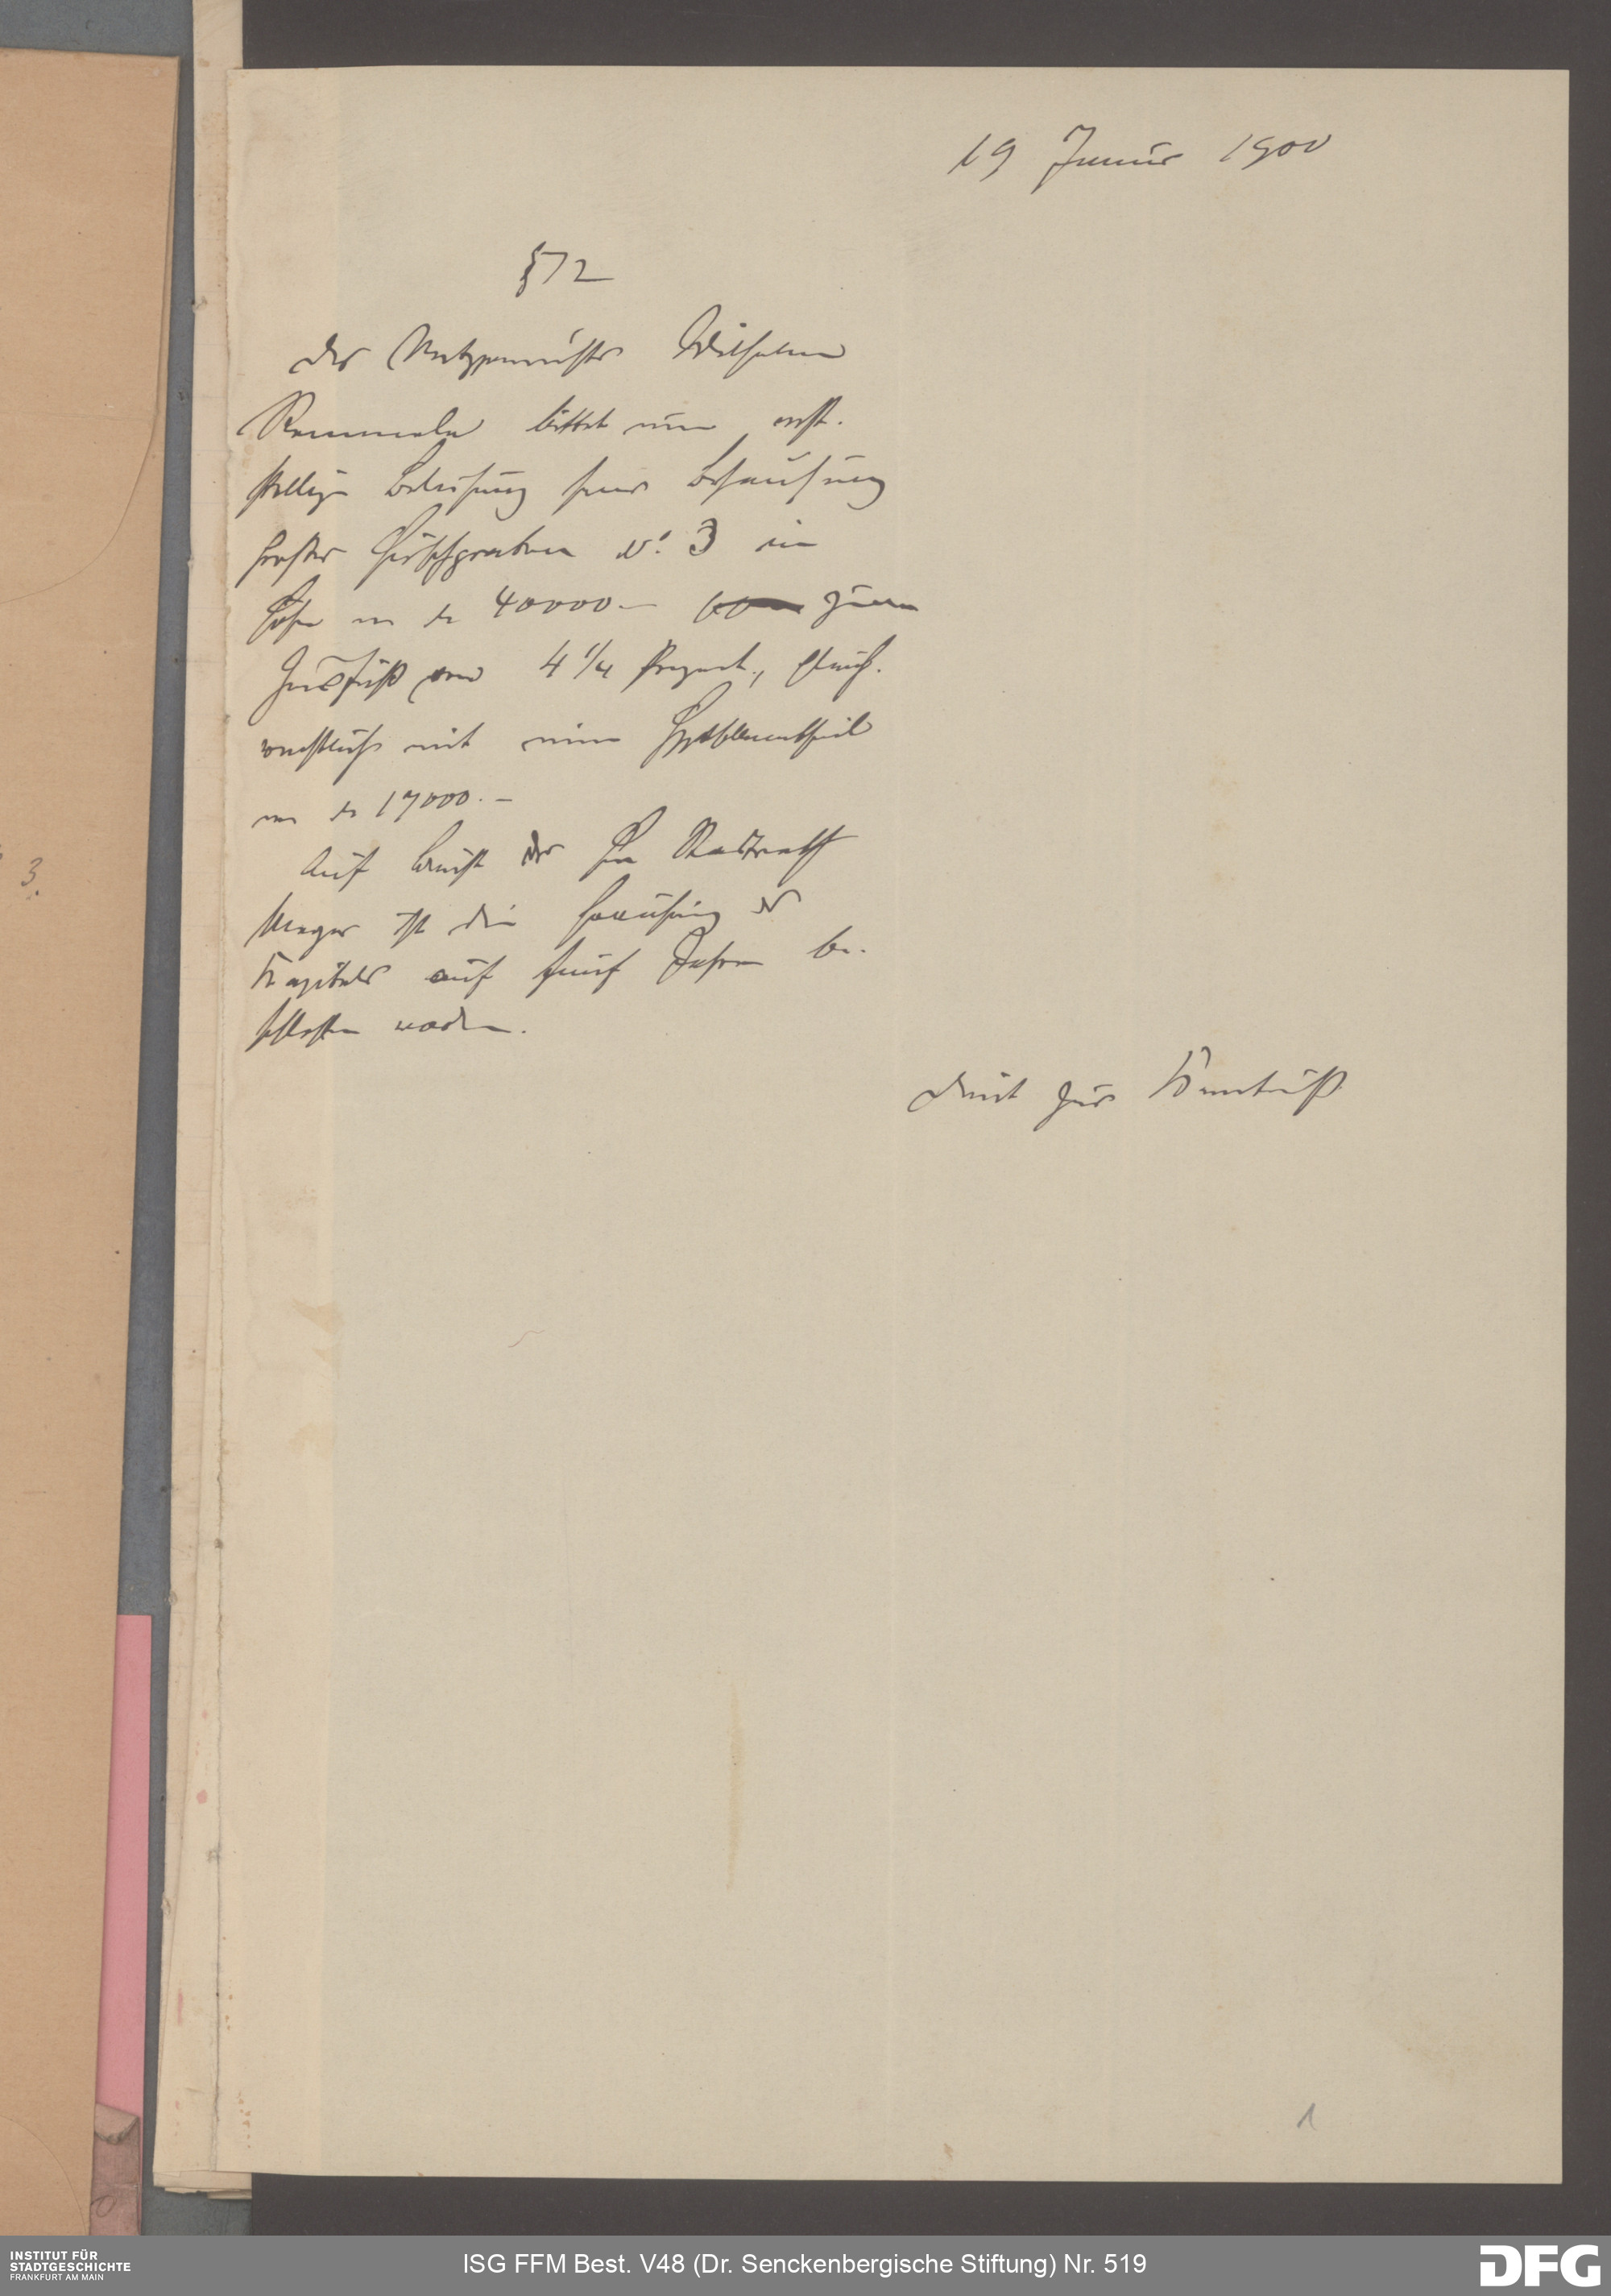 19 Januar 1900
§72
Der Metzgermeister Wilhelm
Remmele bittet um erst-
stellige Beleihung seiner Behausung
Großer Hirschgraben No. 3 in
Höhe von M 40000.— zum
Zinsfuß von 4 1/4 Prozent, gleich-
mit einem
von M 17000.—
Auf Bericht des Hr Stadtrath
Meyer ist die des
Kapitals auf fünf Jahre be-
schlossen worden.
dient zur Kenntniß
3.
1
INSTITUT FÜR
STADTGESCHICHTE
FRANKFURT AM MAIN
ISG FFM Best. V48 (Dr. Senckenbergische Stiftung) Nr. 519
DFG